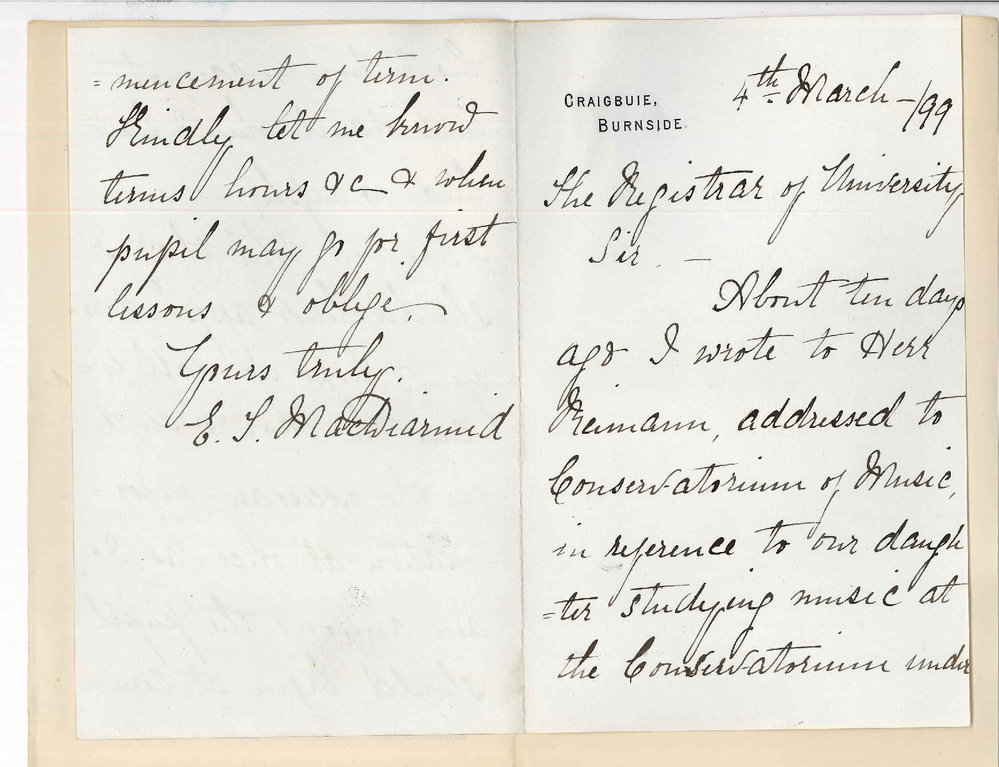 CRAIGBUIE,
BURNSIDE.
4th March -/99
The Registrar of University
Sir. -
About ten days
ago I wrote to Herr
Reimann, addressed to
Conservatorium of Music,
in reference to our daugh
=ter studying music at
the Conservatorium under
=mencement of term.
Kindly let me know
terms hours &c & when
pupil may go for first
lessons & oblige.
Yours truly.
E. S. MacDiarmid